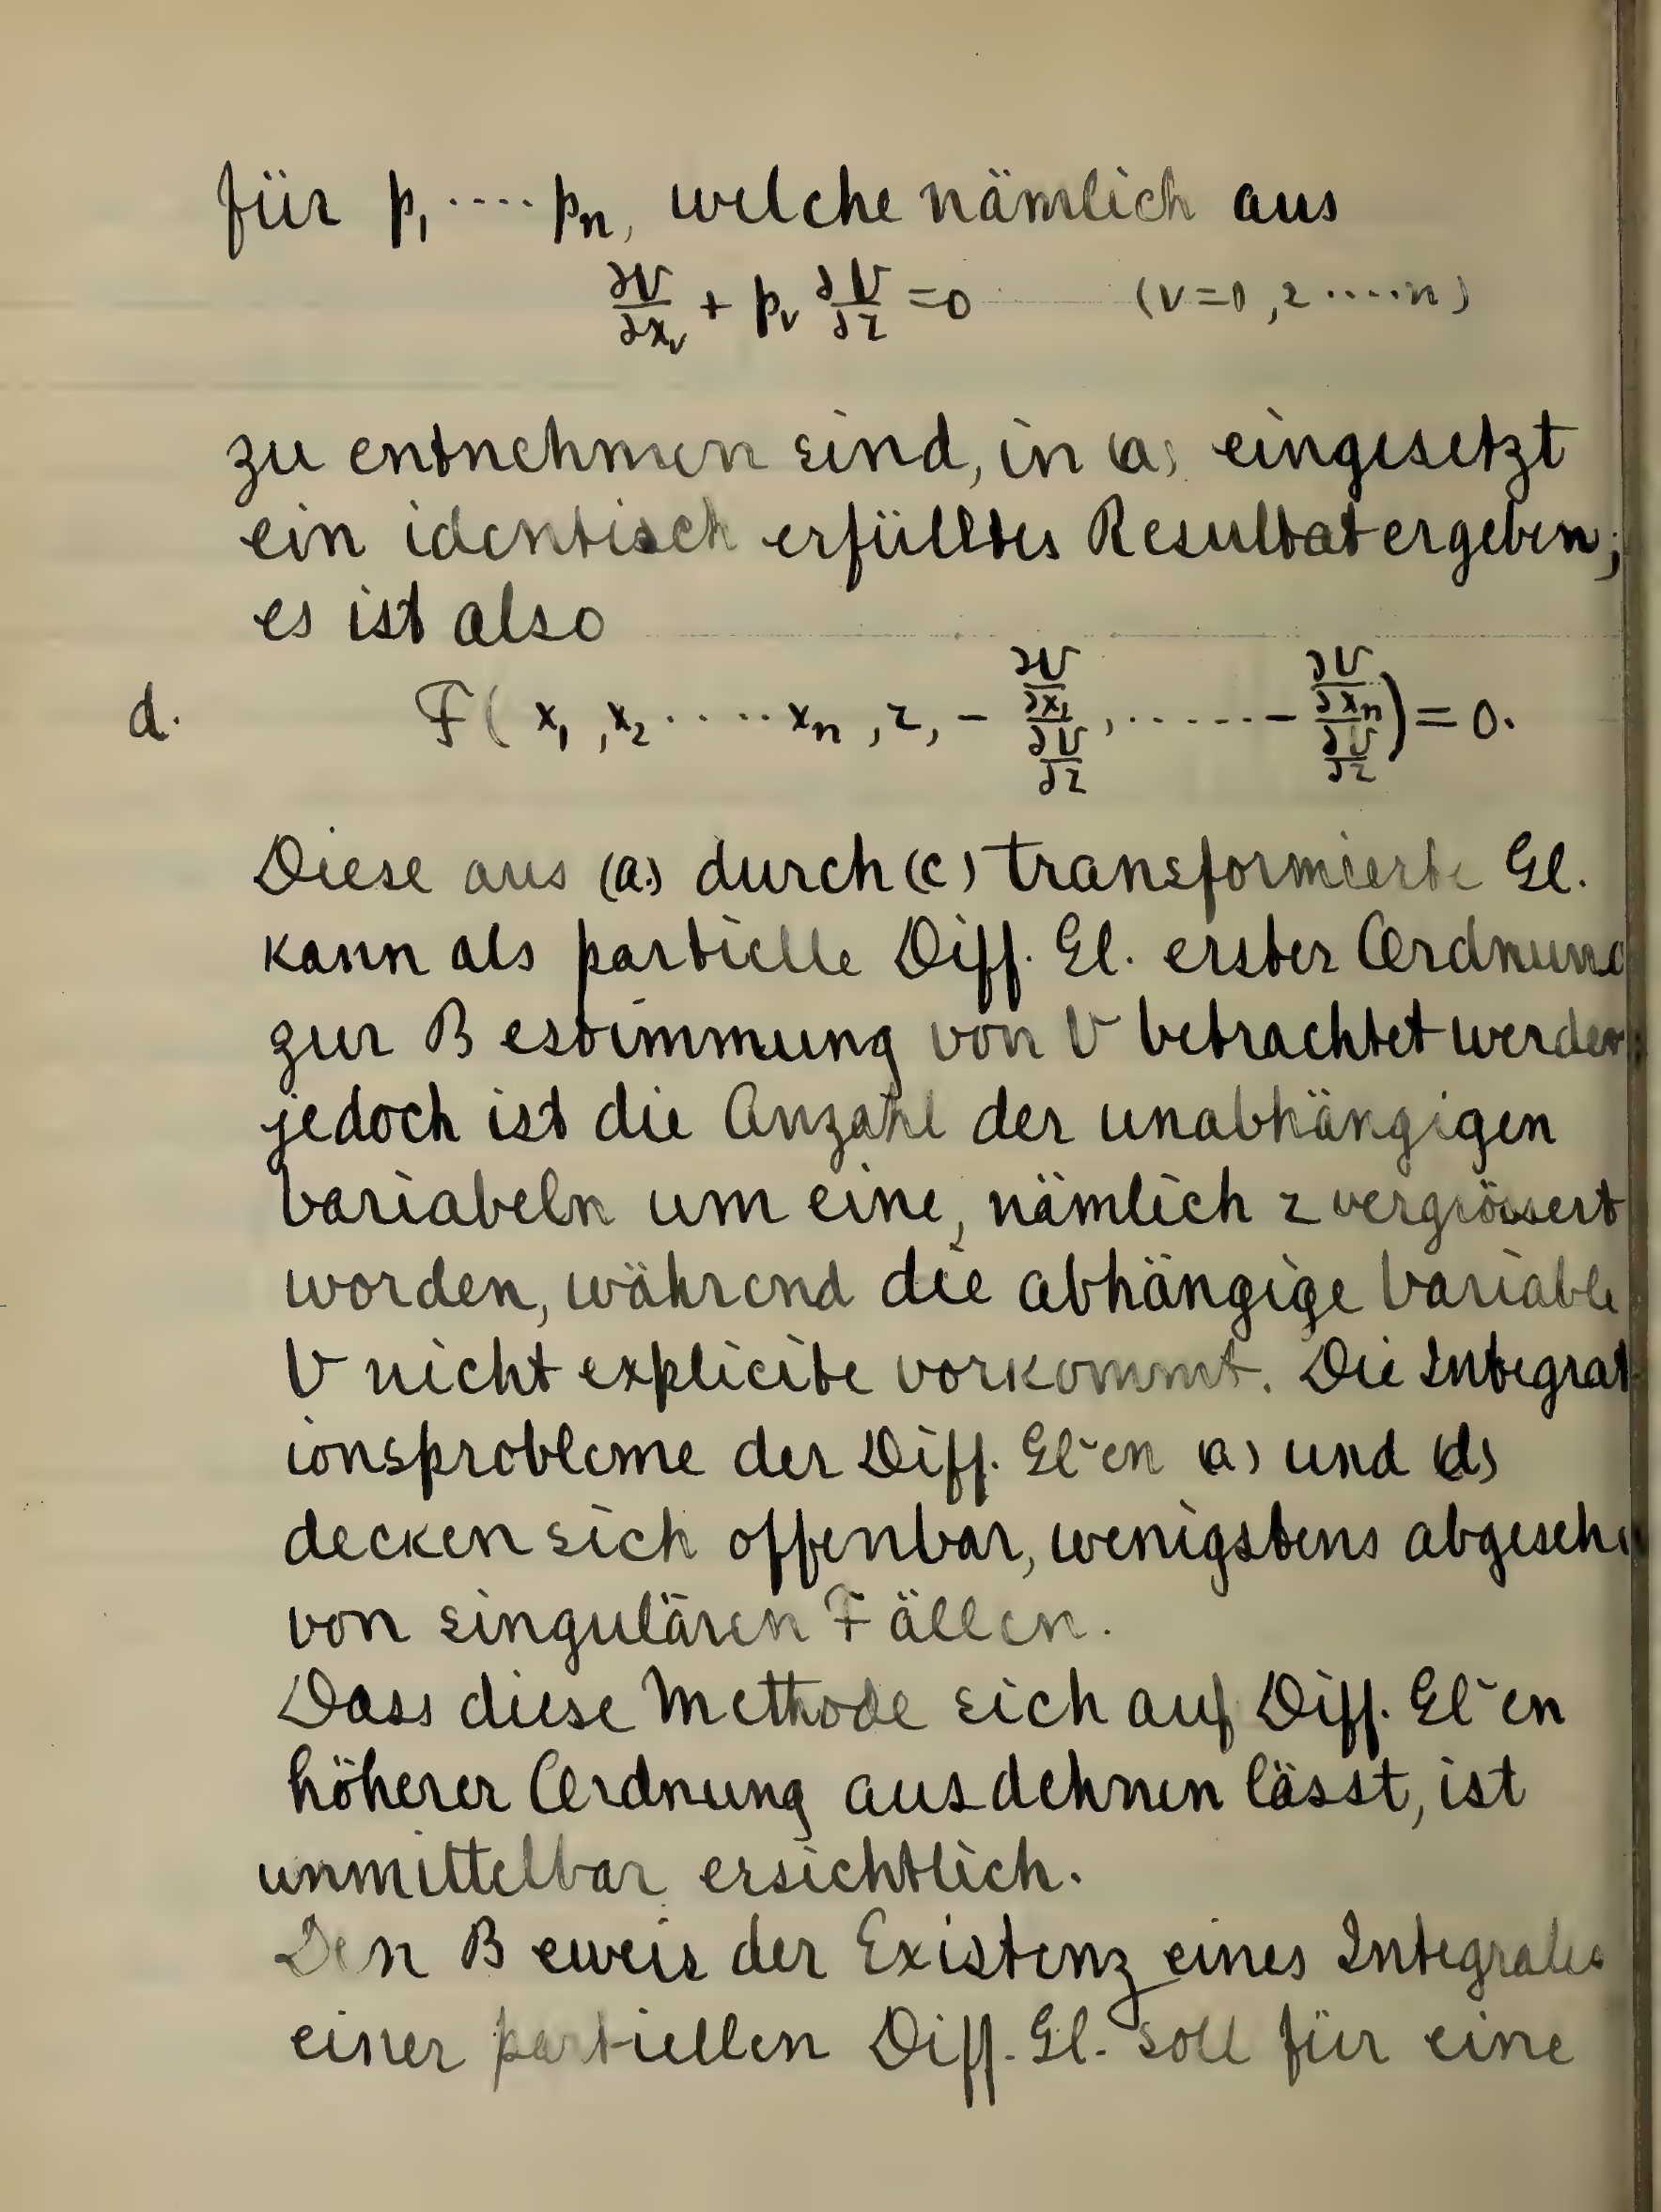 für p₁ ···· pₙ, welche nämlich aus
∂V/∂xᵥ + pᵥ ∂V/∂z = 0 (ν=1, 2 ····n)
zu entnehmen sind, in (a) eingesetzt
ein identisch erfülltes Resultat ergeben;
es ist also
d. F( x₁, x₂ ····· xₙ, z, - (∂V/∂x₁)/(∂V/∂z), ······ - (∂V/∂xₙ)/(∂V/∂z) ) = 0.
Diese aus (a.) durch (c) transformierte Gl.
kann als partielle Diff. Gl. erster Ordnung
zur Bestimmung von V betrachtet werden;
jedoch ist die Anzahl der unabhängigen
Variabeln um eine, nämlich z vergrössert
worden, während die abhängige Variable
V nicht explicite vorkommt. Die Integrat-
ionsprobleme der Diff. Gl~en (a) und (d)
decken sich offenbar, wenigstens abgesehen
von singulären Fällen.
Dass diese Methode sich auf Diff. Gl~en
höherer Ordnung ausdehnen lässt, ist
unmittelbar ersichtlich.
Den Beweis der Existenz eines Integrales
einer partiellen Diff. Gl. soll für eine